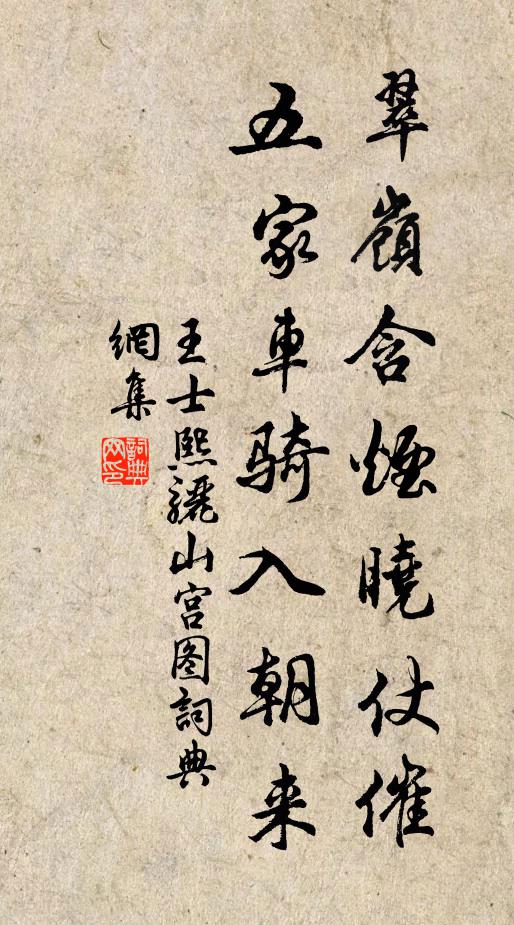 翠嶺含煙曉仗催
五家車騎入朝来
王士熙驪山宫图詞典
網集
詞典
网印